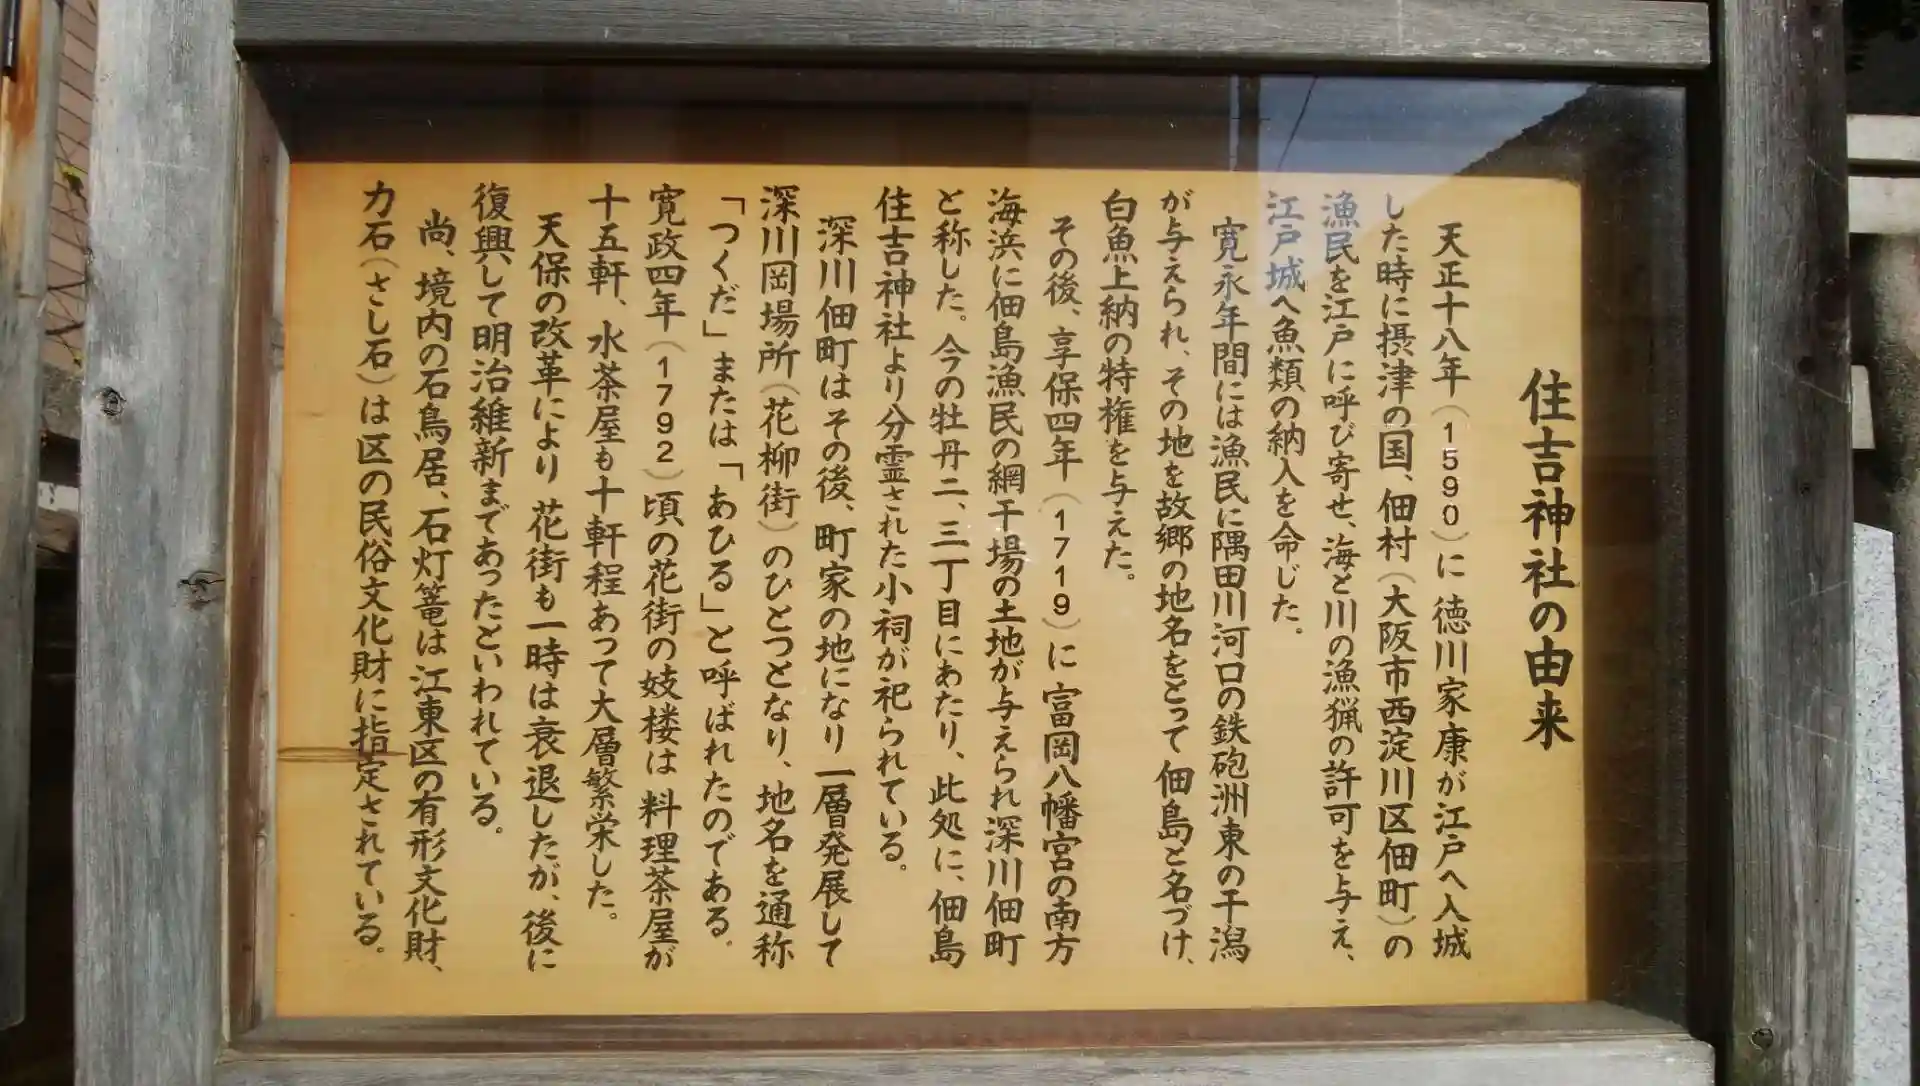 住吉神社の由来
天正十八年（1590）に徳川家康が江戸へ入城
した時に摂津の国、佃村（大阪市西淀川区佃町）の
漁民を江戸に呼び寄せ、海と川の漁猟の許可を与え、
江戸城へ魚類の納入を命じた。
寛永年間には漁民に隅田川河口の鉄砲洲東の干潟
が与えられ、その地を故郷の地名をとって佃島と名づけ、
白魚上納の特権を与えた。
その後、享保四年（1719）に富岡八幡宮の南方
海浜に佃島漁民の網干場の土地が与えられ深川佃町
と称した。今の牡丹二、三丁目にあたり、此処に、佃島
住吉神社より分霊された小祠が祀られている。
深川佃町はその後、町家の地になり一層発展して
深川岡場所（花柳街）のひとつとなり、地名を通称
「つくだ」または「あひる」と呼ばれたのである。
寛政四年（1792）頃の花街の妓楼は料理茶屋が
十五軒、水茶屋も十軒程あって大層繁栄した。
天保の改革により花街も一時は衰退したが、後に
復興して明治維新まであったといわれている。
尚、境内の石鳥居、石灯篭は江東区の有形文化財、
力石（さし石）は区の民俗文化財に指定されている。